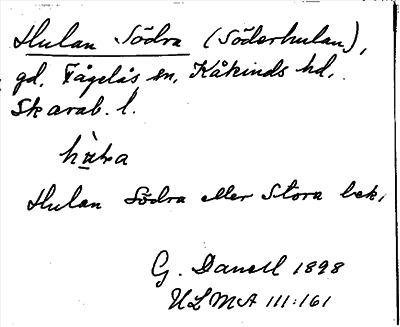 Hulan Södra (Söderhulan),
gd, Fågelås sn, Kåkinds hd,
Skarab. l.
Hulan Södra eller Stora bek,
G. Danell 1898
ULMA 111:161